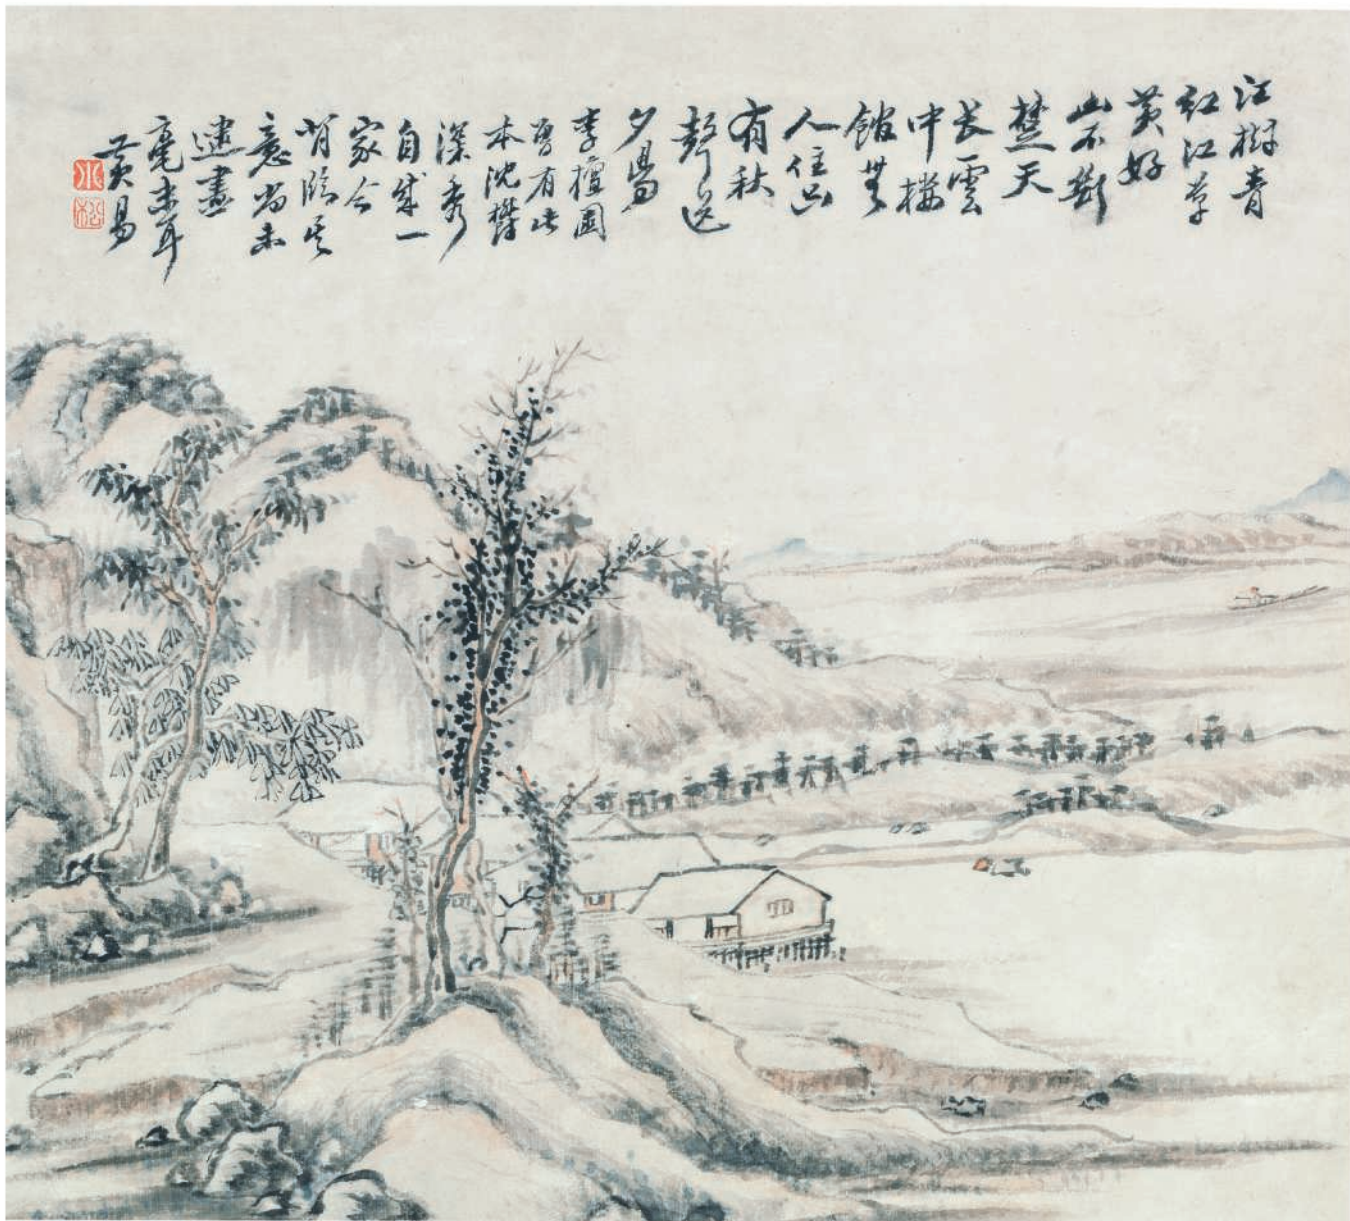 江樹青
紅江草
黃好
山不斷
楚天
長雲
中樓
館無
人住只
有秋
聲送
夕陽
李檀園
曾有此
本沈鬱
深秀
自成一
家今
背臨其
意尚未
逮盡
毫末耳
黃易
小
松